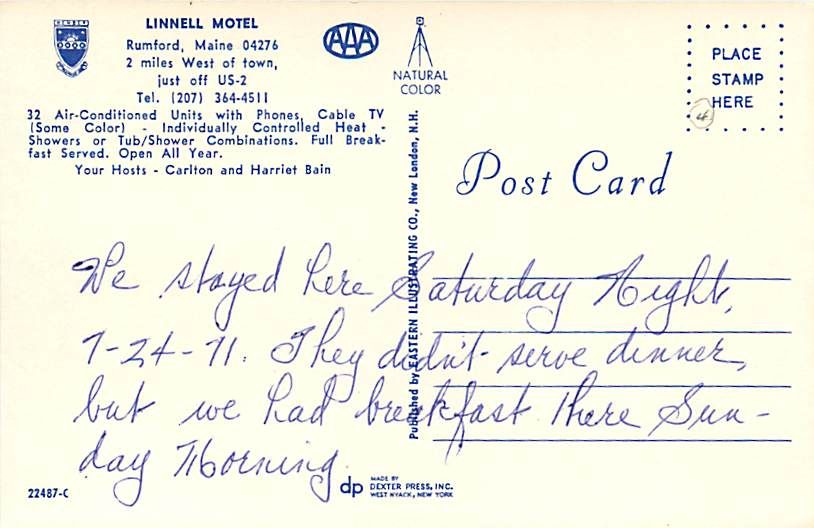 LINNELL MOTEL
Rumford, Maine 04276
2 miles West of town,
just off US-2
Tel. (207) 364-4511
32 Air-Conditioned Units with Phones, Cable TV
(Some Color) - Individually Controlled Heat -
Showers or Tub/Shower Combinations. Full Break-
fast Served. Open All Year.
Your Hosts - Carlton and Harriet Bain
AAA
NATURAL
COLOR
PLACE
STAMP
HERE
4
Post Card
Published by EASTERN ILLUSTRATING CO., New London, N.H.
We stayed here Saturday Night,
7-24-71. They didn't serve dinner,
but we had breakfast there Sun-
day Morning.
22487-C
dp
MADE BY
DEXTER PRESS, INC.
WEST NYACK, NEW YORK